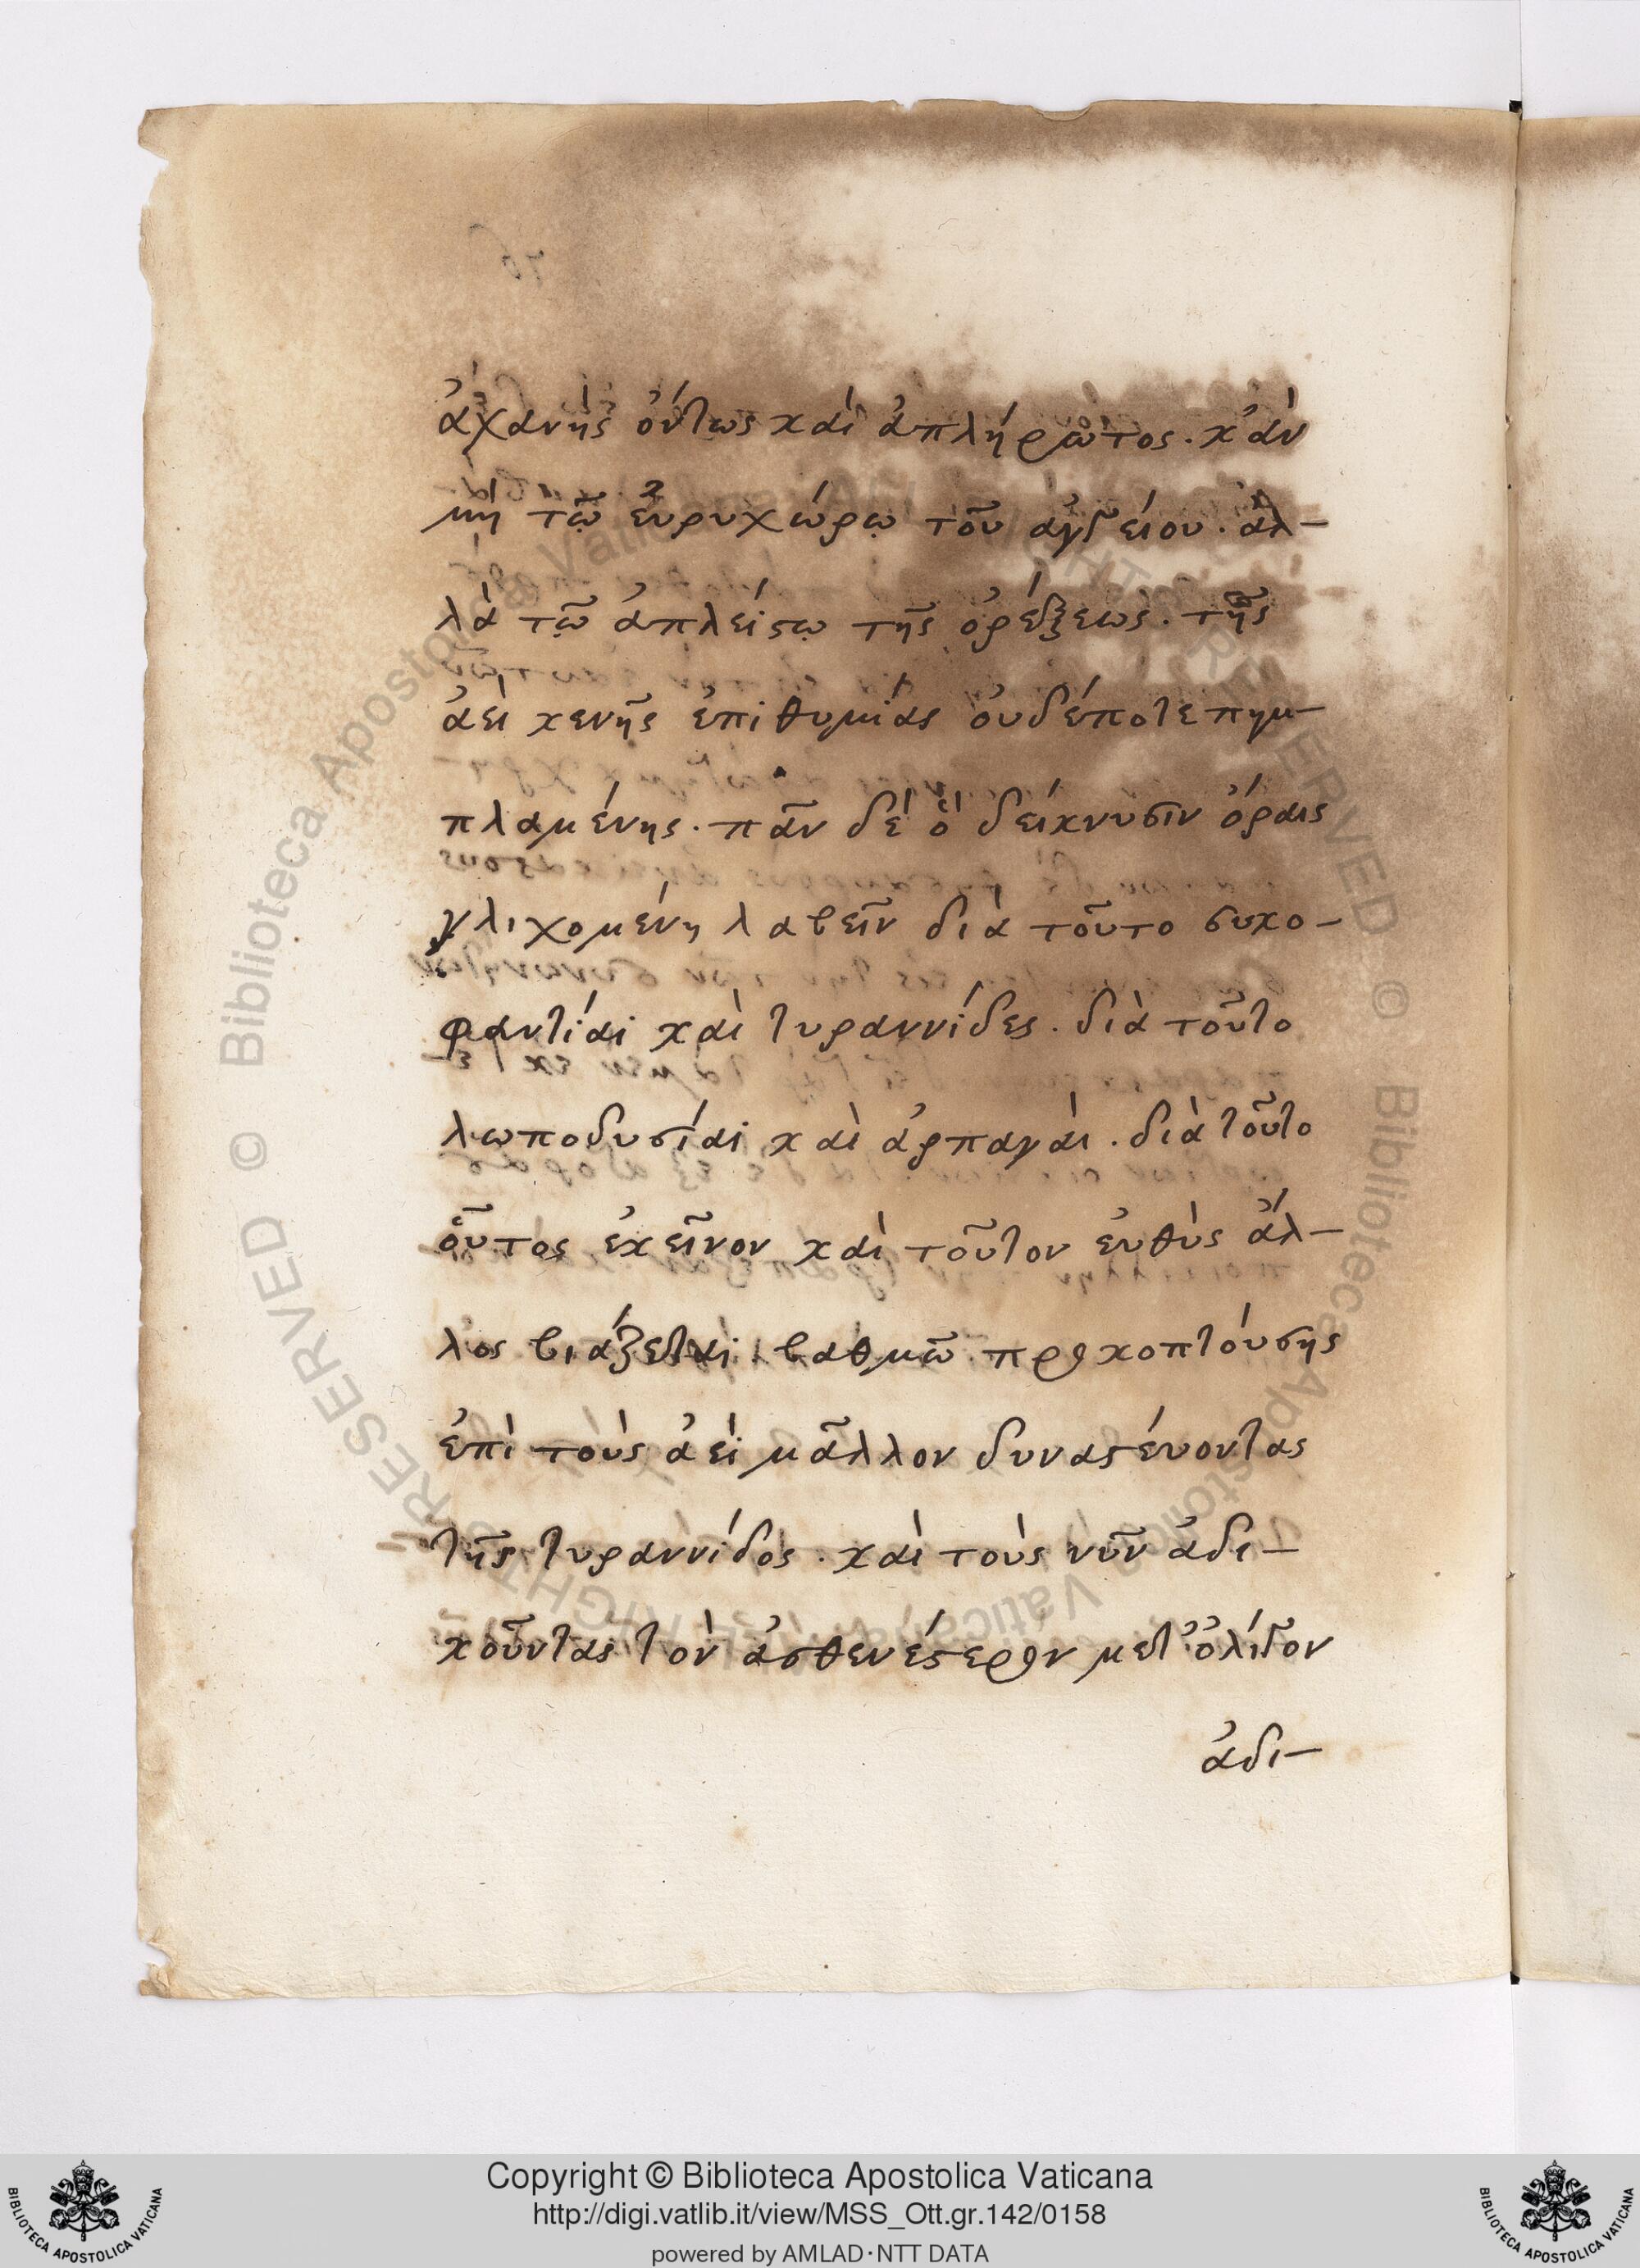 ἀχανὴς ὄντως καὶ ἀπλήρωτος. κἂν
μὴ τῷ εὐρυχώρῳ τοῦ ἀγγείου. ἀλ-
λὰ τῷ ἀπλείστῳ τῆς ὀρέξεως. τῆς
ἀεὶ κενῆς ἐπιθυμίας οὐδέποτε πημ-
πλαμένης. πᾶν δὲ ὃ δείκνυσιν ὅραις
γλιχομένη λαβεῖν διὰ τοῦτο συκο-
φαντίαι καὶ τυραννίδες. διὰ τοῦτο
λωποδυσίαι καὶ ἁρπαγαὶ. διὰ τοῦτο
οὗτος ἐκεῖνον καὶ τοῦτον εὐθὺς ἄλ-
λος βιάζεται, βαθμῶ προκοπτούσης
ἐπὶ τοὺς ἀεὶ μᾶλλον δυναστεύοντας
τῆς τυραννίδος. καὶ τοὺς νῦν ἀδι-
κοῦντας τὸν ἀσθενέστερον μετ' ὀλίγον
ἀδι-
BIBLIOTECA APOSTOLICA VATICANA
Copyright © Biblioteca Apostolica Vaticana
http://digi.vatlib.it/view/MSS_Ott.gr.142/0158
powered by AMLAD·NTT DATA
BIBLIOTECA APOSTOLICA VATICANA